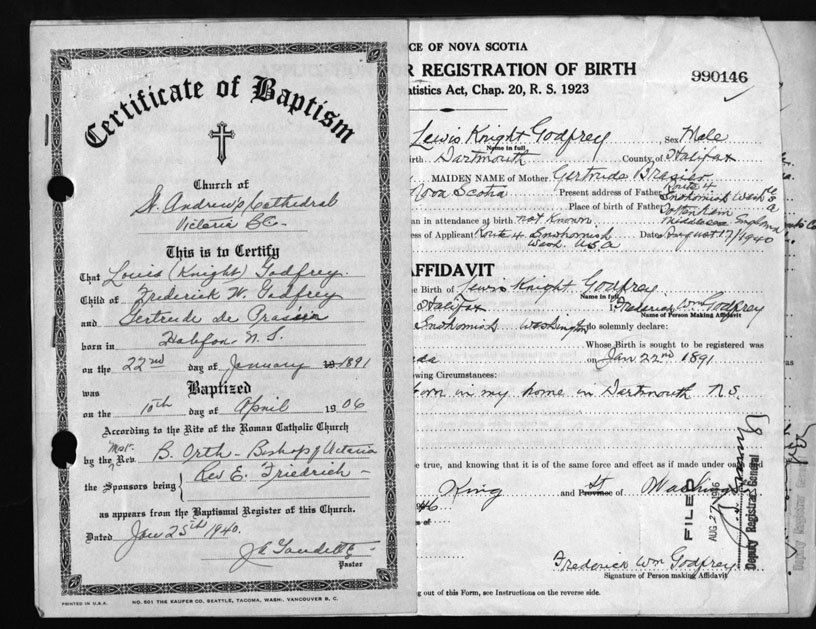 Certificate of Baptism
Church of
St. Andrew's Cathedral
Victoria B.C.
This is to Certify
That Louis (Knight) Godfrey
Child of Frederick W. Godfrey
and Gertrude de
born in Halifax N. S.
on the 22nd day of January 1891
was Baptized
on the 10th day of April 1906
According to the Rite of the Roman Catholic Church
by the Most Rev. B. Orth - Bishop of Victoria
the Sponsors being { Rev E. Friedrich -
as appears from the Baptismal Register of this Church.
Dated Jan 25th 1940.
J E
Pastor
PRINTED IN U.S.A. NO. 501 THE KAUFER CO. SEATTLE, TACOMA, WASH. VANCOUVER B. C.
CE OF NOVA SCOTIA
R REGISTRATION OF BIRTH
990146
tatistics Act, Chap. 20, R. S. 1923
Lewis Knight Godfrey Sex Male
Name in full
irth Dartmouth County of Halifax
MAIDEN NAME of Mother Gertrude
Nova Scotia Present address of Father Route 4 Snohomish Wash
Place of birth of Father Tottenham Middlesex England
an in attendance at birth not Known
ss of Applicant Route 4 Snohomish Wash. USA Date August 17/1940
AFFIDAVIT
e Birth of Lewis Knight Godfrey
Name in full
Halifax Frederick Wm Godfrey
Name of Person Making Affidavit
Snohomish Washington do solemnly declare:
Whose Birth is sought to be registered was
ada on Jan 22nd 1891
owing Circumstances:
orn in my home in Dartmouth N.S.
e true, and knowing that it is of the same force and effect as if made under oath
King and Province of Washington
46
FILED
AUG 27 1946
Deputy Registrar General
Frederick Wm Godfrey
Signature of Person making Affidavit
ng out of this Form, see Instructions on the reverse side.